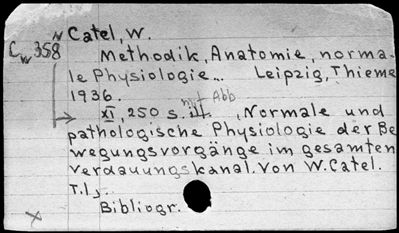 N Catel, W.
C w 358
Methodik, Anatomie, norma-
le Physiologie.. Leipzig, Thieme
1936.
mit Abb
XI, 250 s. ill. , Normale und
pathologische Physiologie der Be
wegungsvorgänge im gesamten
Verdauungskanal. Von W. Catel.
T.1,
Bibliogr.